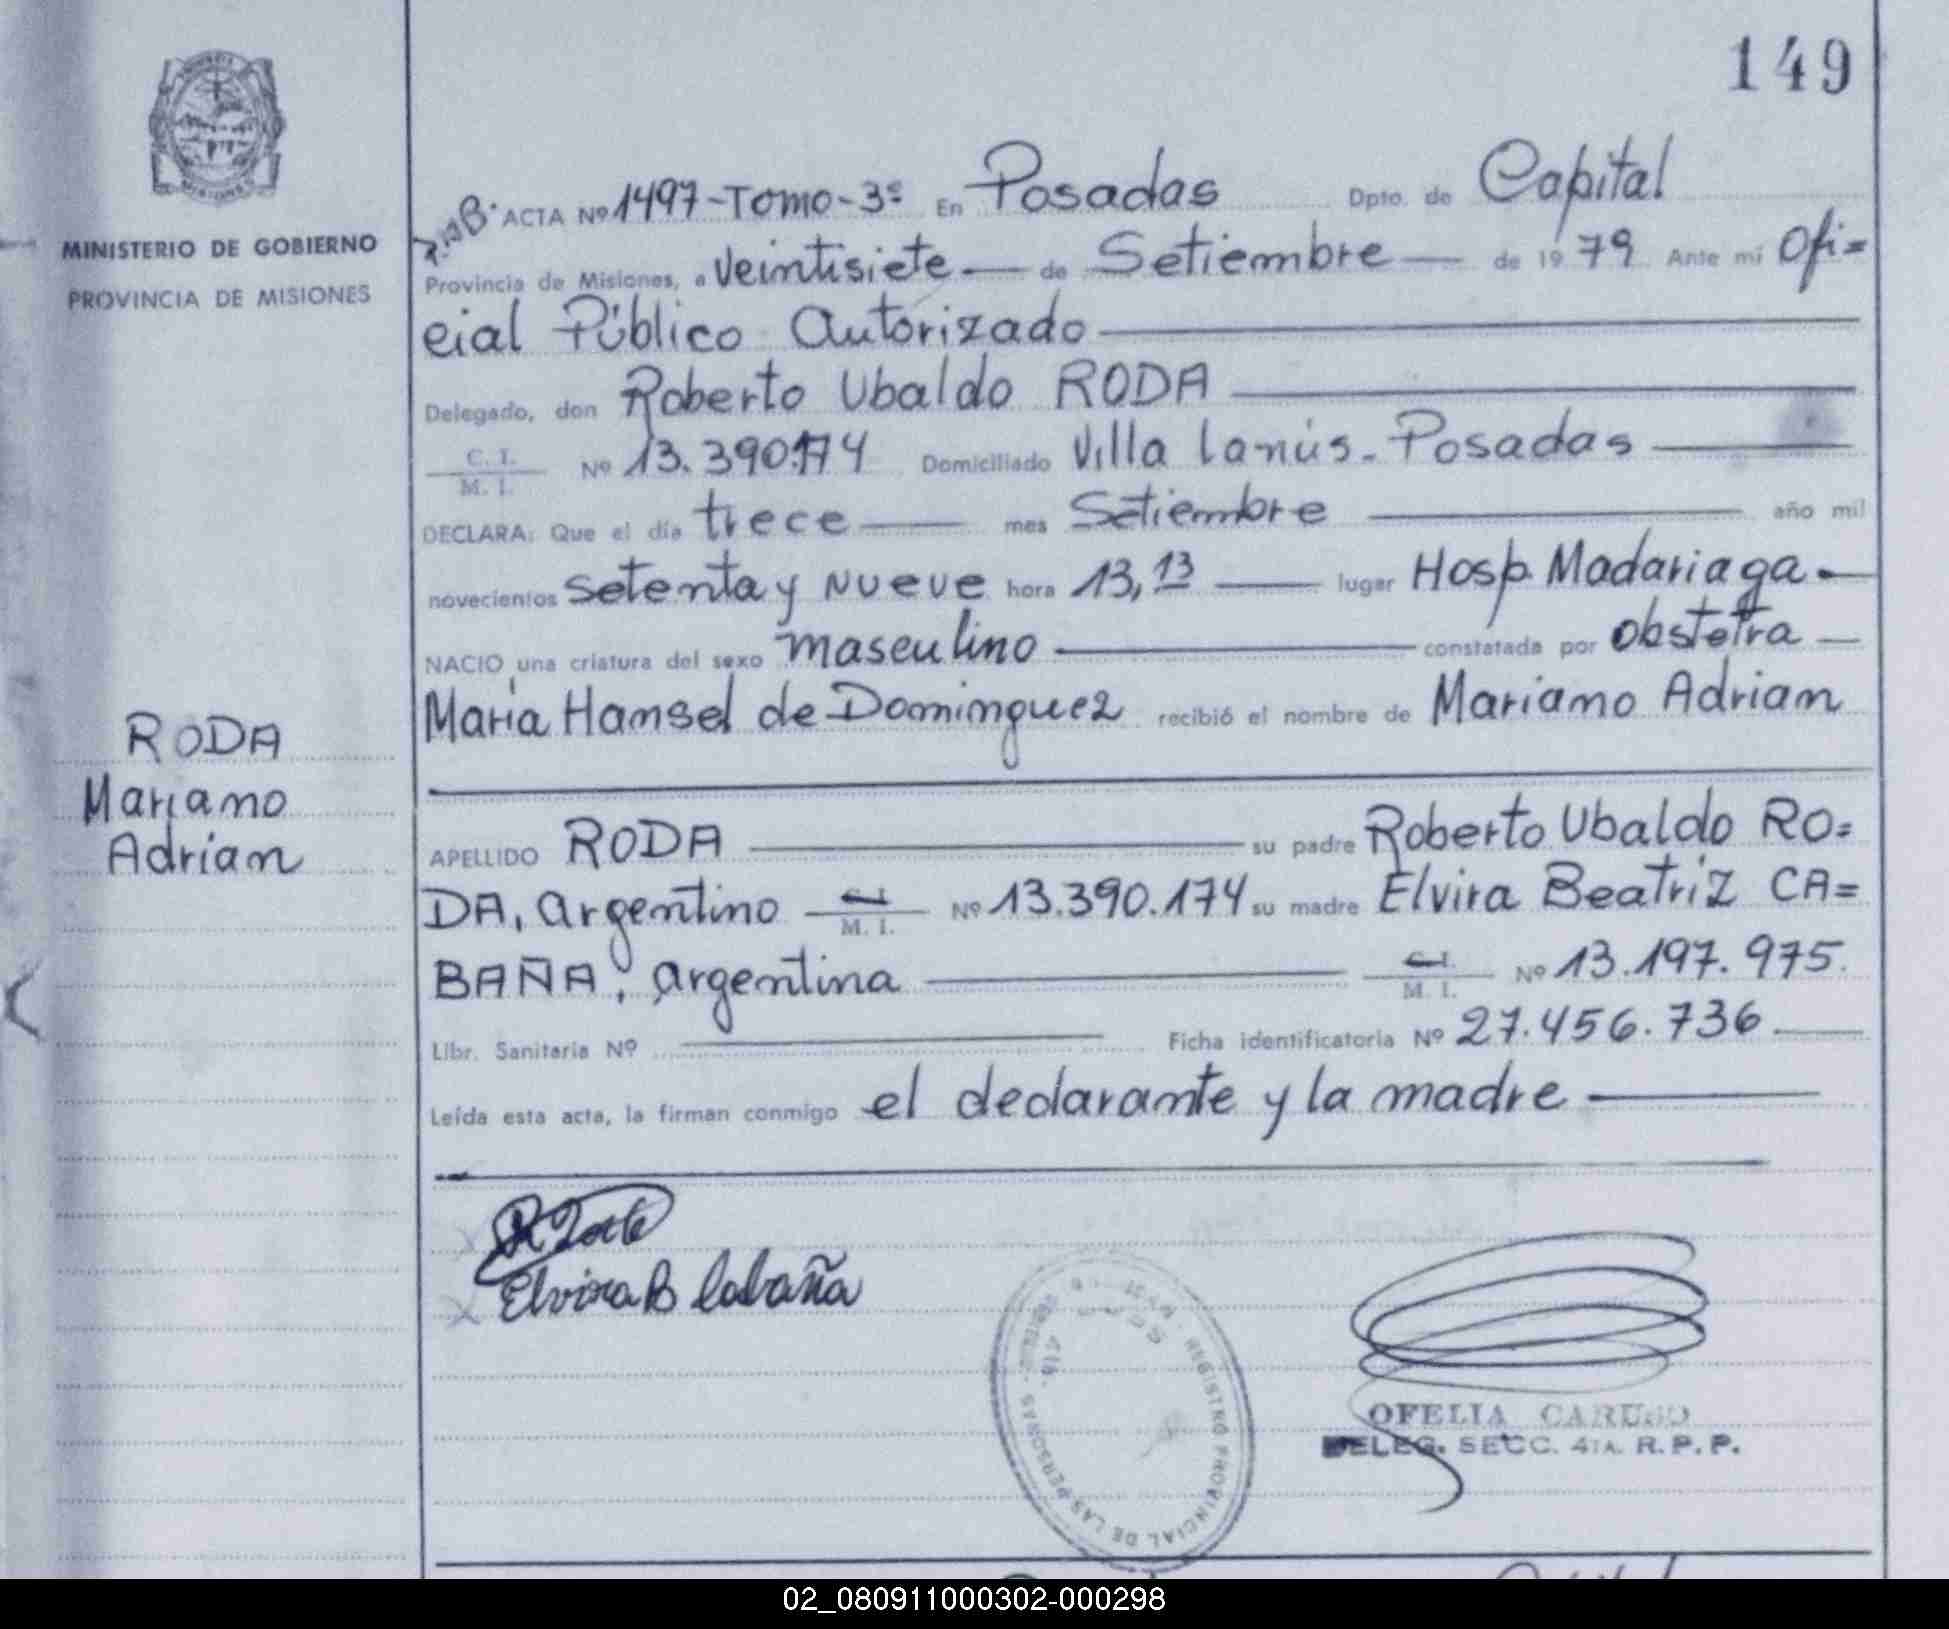 149
MINISTERIO DE GOBIERNO
PROVINCIA DE MISIONES
ACTA Nº 1497-TOMO-3º En Posadas Dpto. de Capital
Provincia de Misiones, a veintisiete — de Setiembre — de 19 79 Ante mí Ofi=
cial Público Autorizado
Delegado, don Roberto Ubaldo RODA
C. I.
M. I. Nº 13.390.174 Domiciliado Villa Lanús - Posadas
DECLARA: Que el día trece — mes Setiembre — año mil
novecientos setenta y nueve hora 13,13 — lugar Hosp. Madariaga —
NACIO una criatura del sexo masculino — constatada por obstetra —
María Hansel de Dominguez recibió el nombre de Mariano Adrian
RODA
Mariano
Adrian
APELLIDO RODA — su padre Roberto Ubaldo RO=
DA, argentino C. I. M. I. Nº 13.390.174 su madre Elvira Beatriz CA=
BAÑA, argentina — C. I. M. I. Nº 13.197.975.
Libr. Sanitaria Nº — Ficha identificatoria Nº 27.456.736 —
Leída esta acta, la firman conmigo el declarante y la madre —
Elvira B Cabaña
REGISTRO PROVINCIAL DE LAS PERSONAS
OFELIA CARUSO
DELEG. SECC. 4TA. R. P. P.
02_080911000302-000298